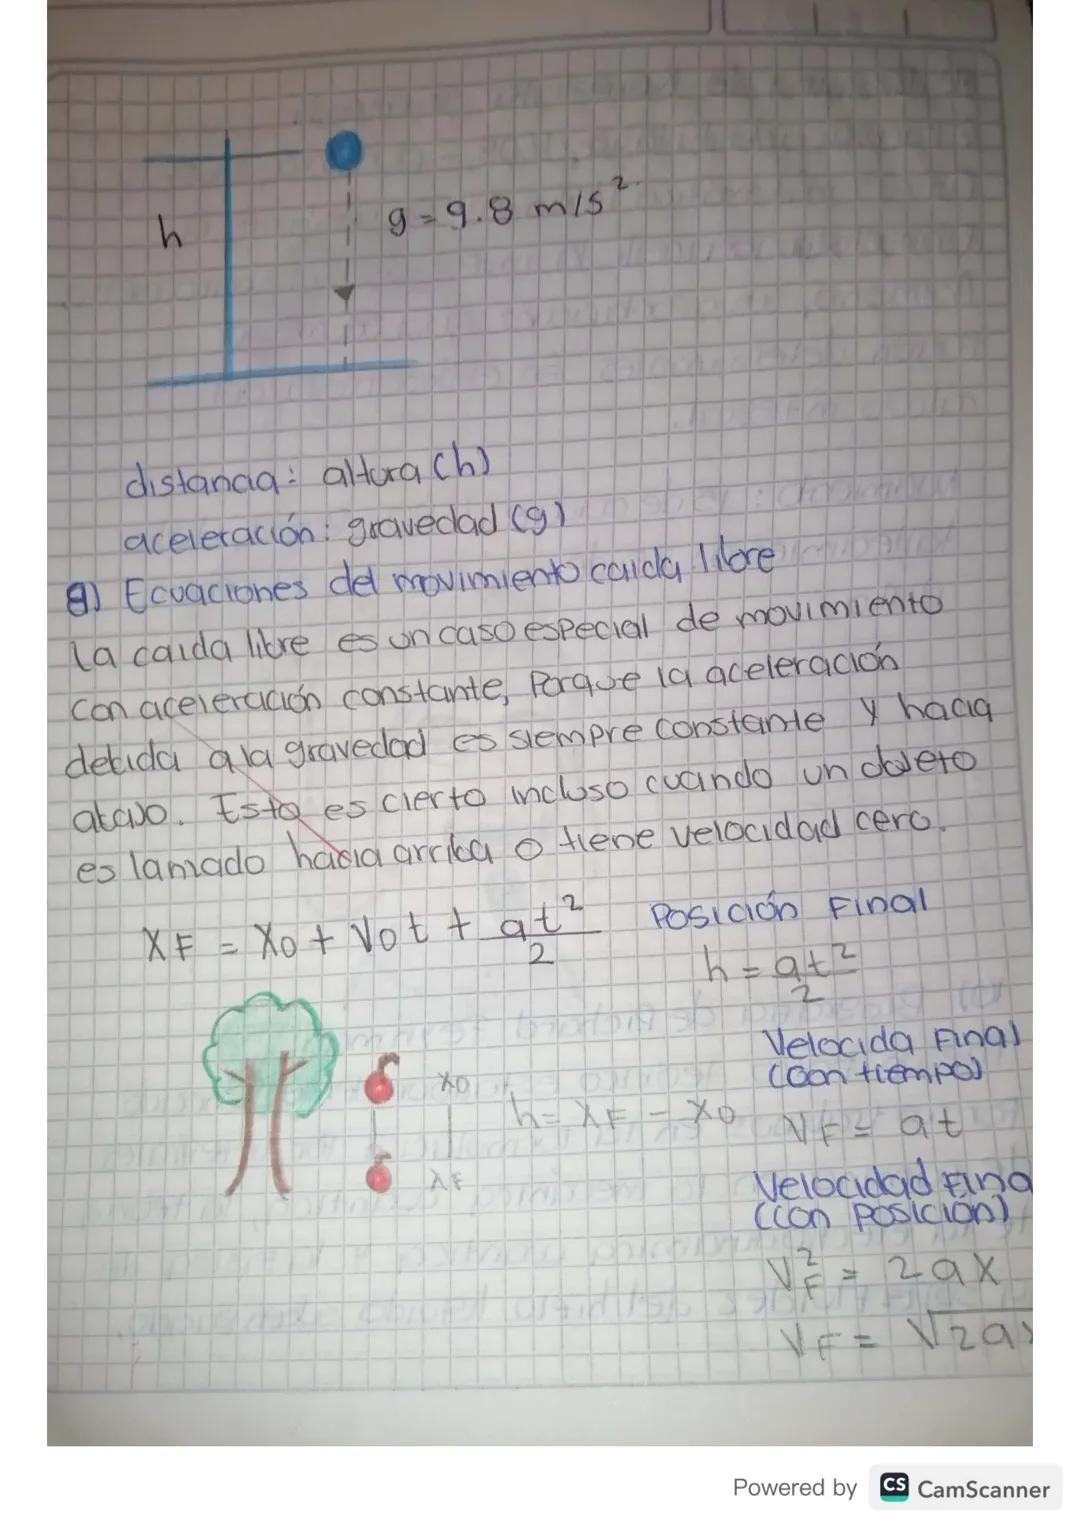 h
g = 9.8 m/s²
distancia: altura (h)
aceleración: gravedad (g)
9) Ecuaciones del movimiento caida libre
la caida libre es un caso especial de movimiento
con aceleración constante, Porque la aceleración
debida a la gravedad es siempre constante y hacia
abajo. Esto es cierto incluso cuando un objeto
es lanzado hacia arriba o tiene velocidad cero.
XF = X0 + V0t + at²/2
Posición Final
h = at²/2
Velocida Final
(con tiempo)
X0
h = XF - X0
VF = at
XF
Velocidad Fina
(con posición)
VF² = 2ax
VF = √2ax
Powered by CS CamScanner